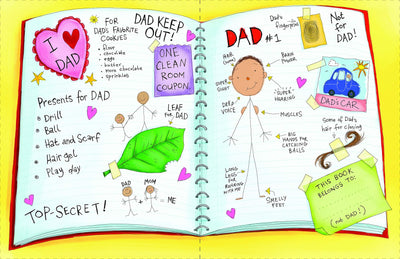 I
DAD
FOR
DAD'S FAVORITE
COOKIES
• flour
• chocolate
• eggs
• butter
• more chocolate
• sprinkles
DAD KEEP
OUT!
ONE
CLEAN
ROOM
COUPON.
Presents for DAD
• Drill
• Ball
• Hat and Scarf
• Hair gel
• Play day
LEAF
for DAD
TOP-SECRET!
DAD
MOM
+
= ME
DAD #1
Dad's
fingerprint
Not
for
DAD!
HAIR
BRAIN
POWER
SUPER
SIGHT
SUPER
HEARING
DEEP
VOICE
MUSCLES
BIG
HANDS FOR
CATCHING
BALLS
LONG
LEGS
FOR
RUNNING
WITH ME
SMELLY
FEET
DAD'S CAR
Some of Dad's
hair for cloning
THIS BOOK
BELONGS TO:
(not DAD!)